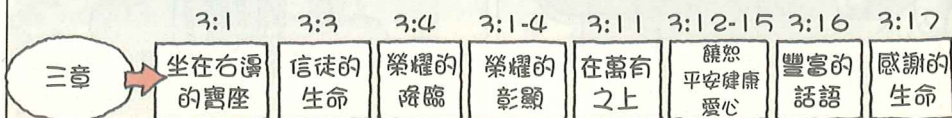 3:1 3:3 3:4 3:1-4 3:11 3:12-15 3:16 3:17
三章
坐在右邊
的寶座
信徒的
生命
榮耀的
降臨
榮耀的
彰顯
在萬有
之上
饒恕
平安健康
愛心
豐富的
話語
感謝的
生命